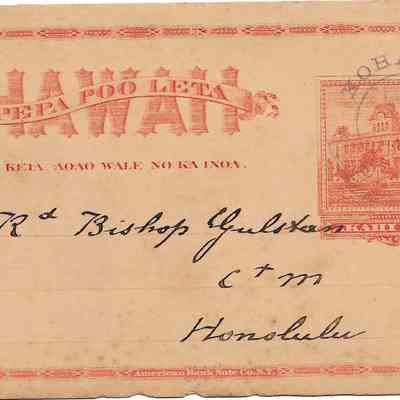 HAWAII
PEPA POO LETA
KEIA AOAO WALE NO KA INOA.
Rd Bishop Gulstan
C + M
Honolulu
American Bank Note Co. N.Y.